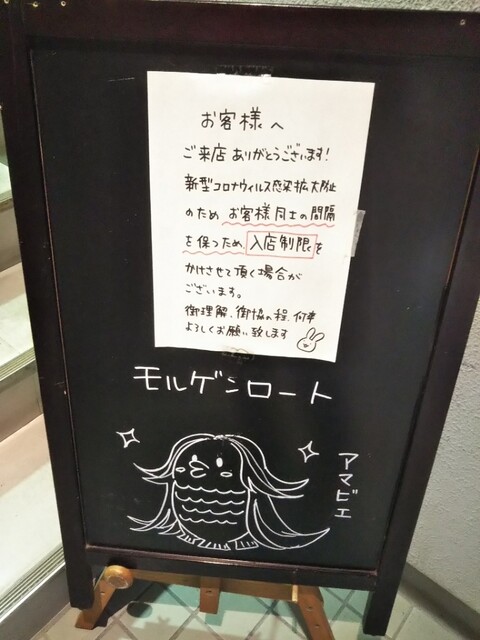 お客様へ
ご来店ありがとうございます!
新型コロナウィルス感染拡大防止
のため、お客様同士の間隔
を保つため、入店制限を
かけさせて頂く場合が
ございます。
御理解、御協の程、何卒
よろしくお願い致します
モルゲンロート
アマビエ